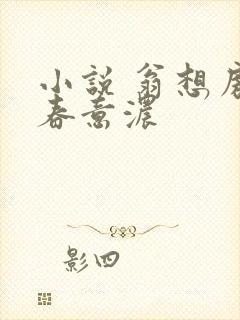 小説 翁想房
春意濃
影四